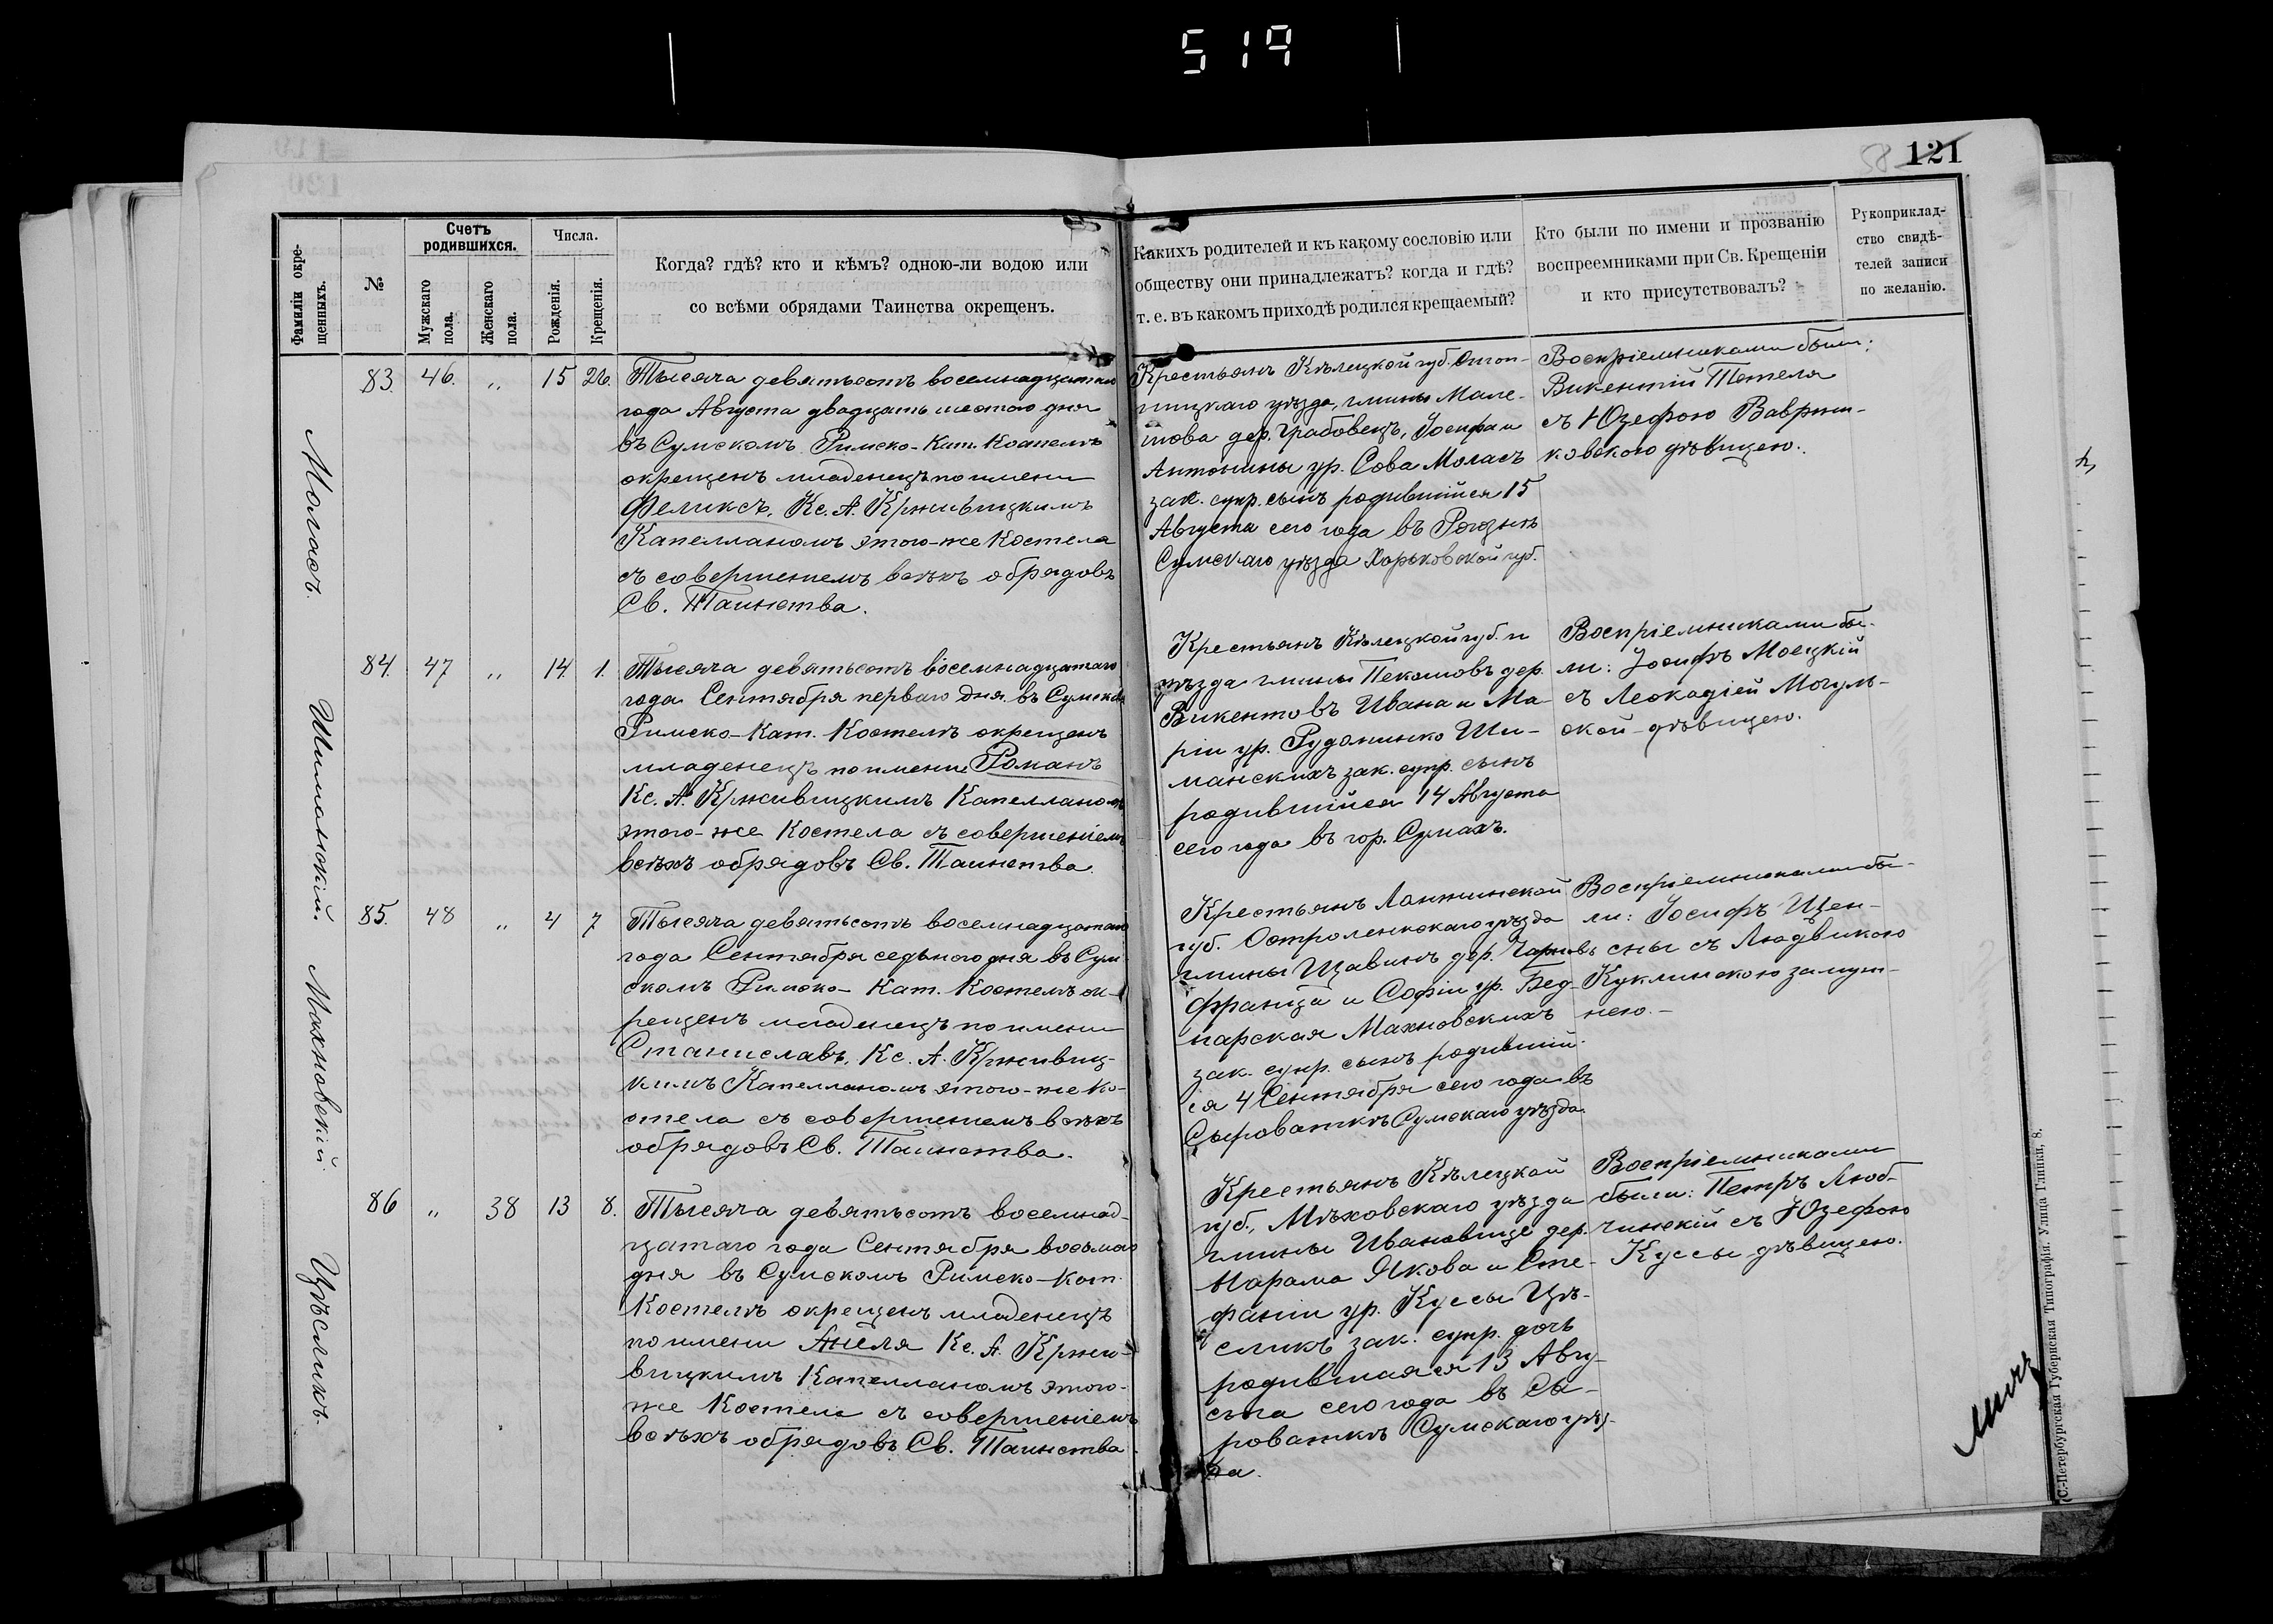 519
58 121
Фамиліи окре-
щенныхъ.
№
Счетъ
родившихся.
Мужскаго
пола.
Женскаго
пола.
Числа.
Рожденія.
Крещенія.
Когда? гдѣ? кто и кѣмъ? одною-ли водою или
со всѣми обрядами Таинства окрещенъ.
Какихъ родителей и къ какому сословію или
обществу они принадлежатъ? когда и гдѣ?
т. е. въ какомъ приходѣ родился крещаемый?
Кто были по имени и прозванію
воспреемниками при Св. Крещеніи
и кто присутствовалъ?
Рукоприклад-
ство свидѣ-
телей записи
по желанію.
Моласъ.
83. 46. „ 15 26.
Тысяча девятьсотъ восемнадцатаго
года Августа двадцать шестого дня
въ Сумскомъ Римско-Кат. Костелѣ
окрещенъ младенецъ по имени
Феликсъ, Кс. А. Крживицкимъ
Капелланомъ этого-же Костела
съ совершеніемъ всѣхъ обрядовъ
Св. Таинства.
Крестьянъ Кѣлецкой губ.
уѣзда, гмины Мале-
шова дер. Грабовецъ, Іосифа и
Антонины ур. Сова Моласъ
зак. супр. сынъ родившійся 15
Августа сего года въ
Сумскаго уѣзда Харьковской губ.
Воспріемниками были:
Викентій Тетеля
съ Юзефою Вавржин-
ковскою дѣвицею.
Шиманскій.
84. 47 „ 14. 1.
Тысяча девятьсотъ восемнадцатаго
года Сентября перваго дня въ Сумском
Римско-Кат. Костелѣ окрещенъ
младенецъ по имени Романъ
Кс. А. Крживицкимъ Капелланомъ
этого-же Костела съ совершеніемъ
всѣхъ обрядовъ Св. Таинства.
Крестьянъ Кѣлецкой губ. и
уѣзда гмины Пекошовъ дер.
Викентовъ Ивана и Ма-
ріи ур. Ши-
манскихъ зак. супр. сынъ
родившійся 14 Августа
сего года въ гор. Сумахъ.
Воспріемниками бы-
ли: Іосифъ Моецкій
съ Леокадіей Могуль-
ской-дѣвицею.
Махновскій
85. 48 „ 4 7
Тысяча девятьсотъ восемнадцатаго
года Сентября седьмого дня въ Сум-
скомъ Римско-Кат. Костелѣ ок-
рещенъ младенецъ по имени
Станиславъ, Кс. А. Крживиц-
кимъ Капелланомъ этого-же Ко-
стела съ совершеніемъ всѣхъ
обрядовъ Св. Таинства.
Крестьянъ Ломжинской
губ. Остроленкскаго уѣзда
гмины Щавинъ дер.
Франца и Софіи ур. Бед-
нарская Махновскихъ
зак. супр. сынъ родившій-
ся 4 Сентября сего года въ
Сыроваткѣ Сумскаго уѣзда
Воспріемниками бы-
ли: Іосифъ Щен-
сны съ Людвикою
Куклинскою замуж-
нею.-
Цѣсликъ.
86 „ 38 13 8.
Тысяча девятьсотъ восемнад-
цатаго года Сентября восьмаго
дня въ Сумскомъ Римско-Кат.
Костелѣ окрещенъ младенецъ
по имени Анеля Кс. А. Кржи-
вицкимъ Капелланомъ этого-
же Костела съ совершеніемъ
всѣхъ обрядовъ Св. Таинства
Крестьянъ Кѣлецкой
губ., Мѣховскаго уѣзда
гмины Ивановице дер.
Марама Якова и Сте-
фаніи ур. Куссы Цѣ-
сликъ зак. супр. дочь
родившаяся 13 Авгу-
ста сего года въ Сы-
роваткѣ Сумскаго уѣз-
да.
Воспріемниками
были: Петръ Люб-
чинскій съ Юзефою
Куссы дѣвицею.
С.-Петербургская Губернская Типографія. Улица Глинки, 8.